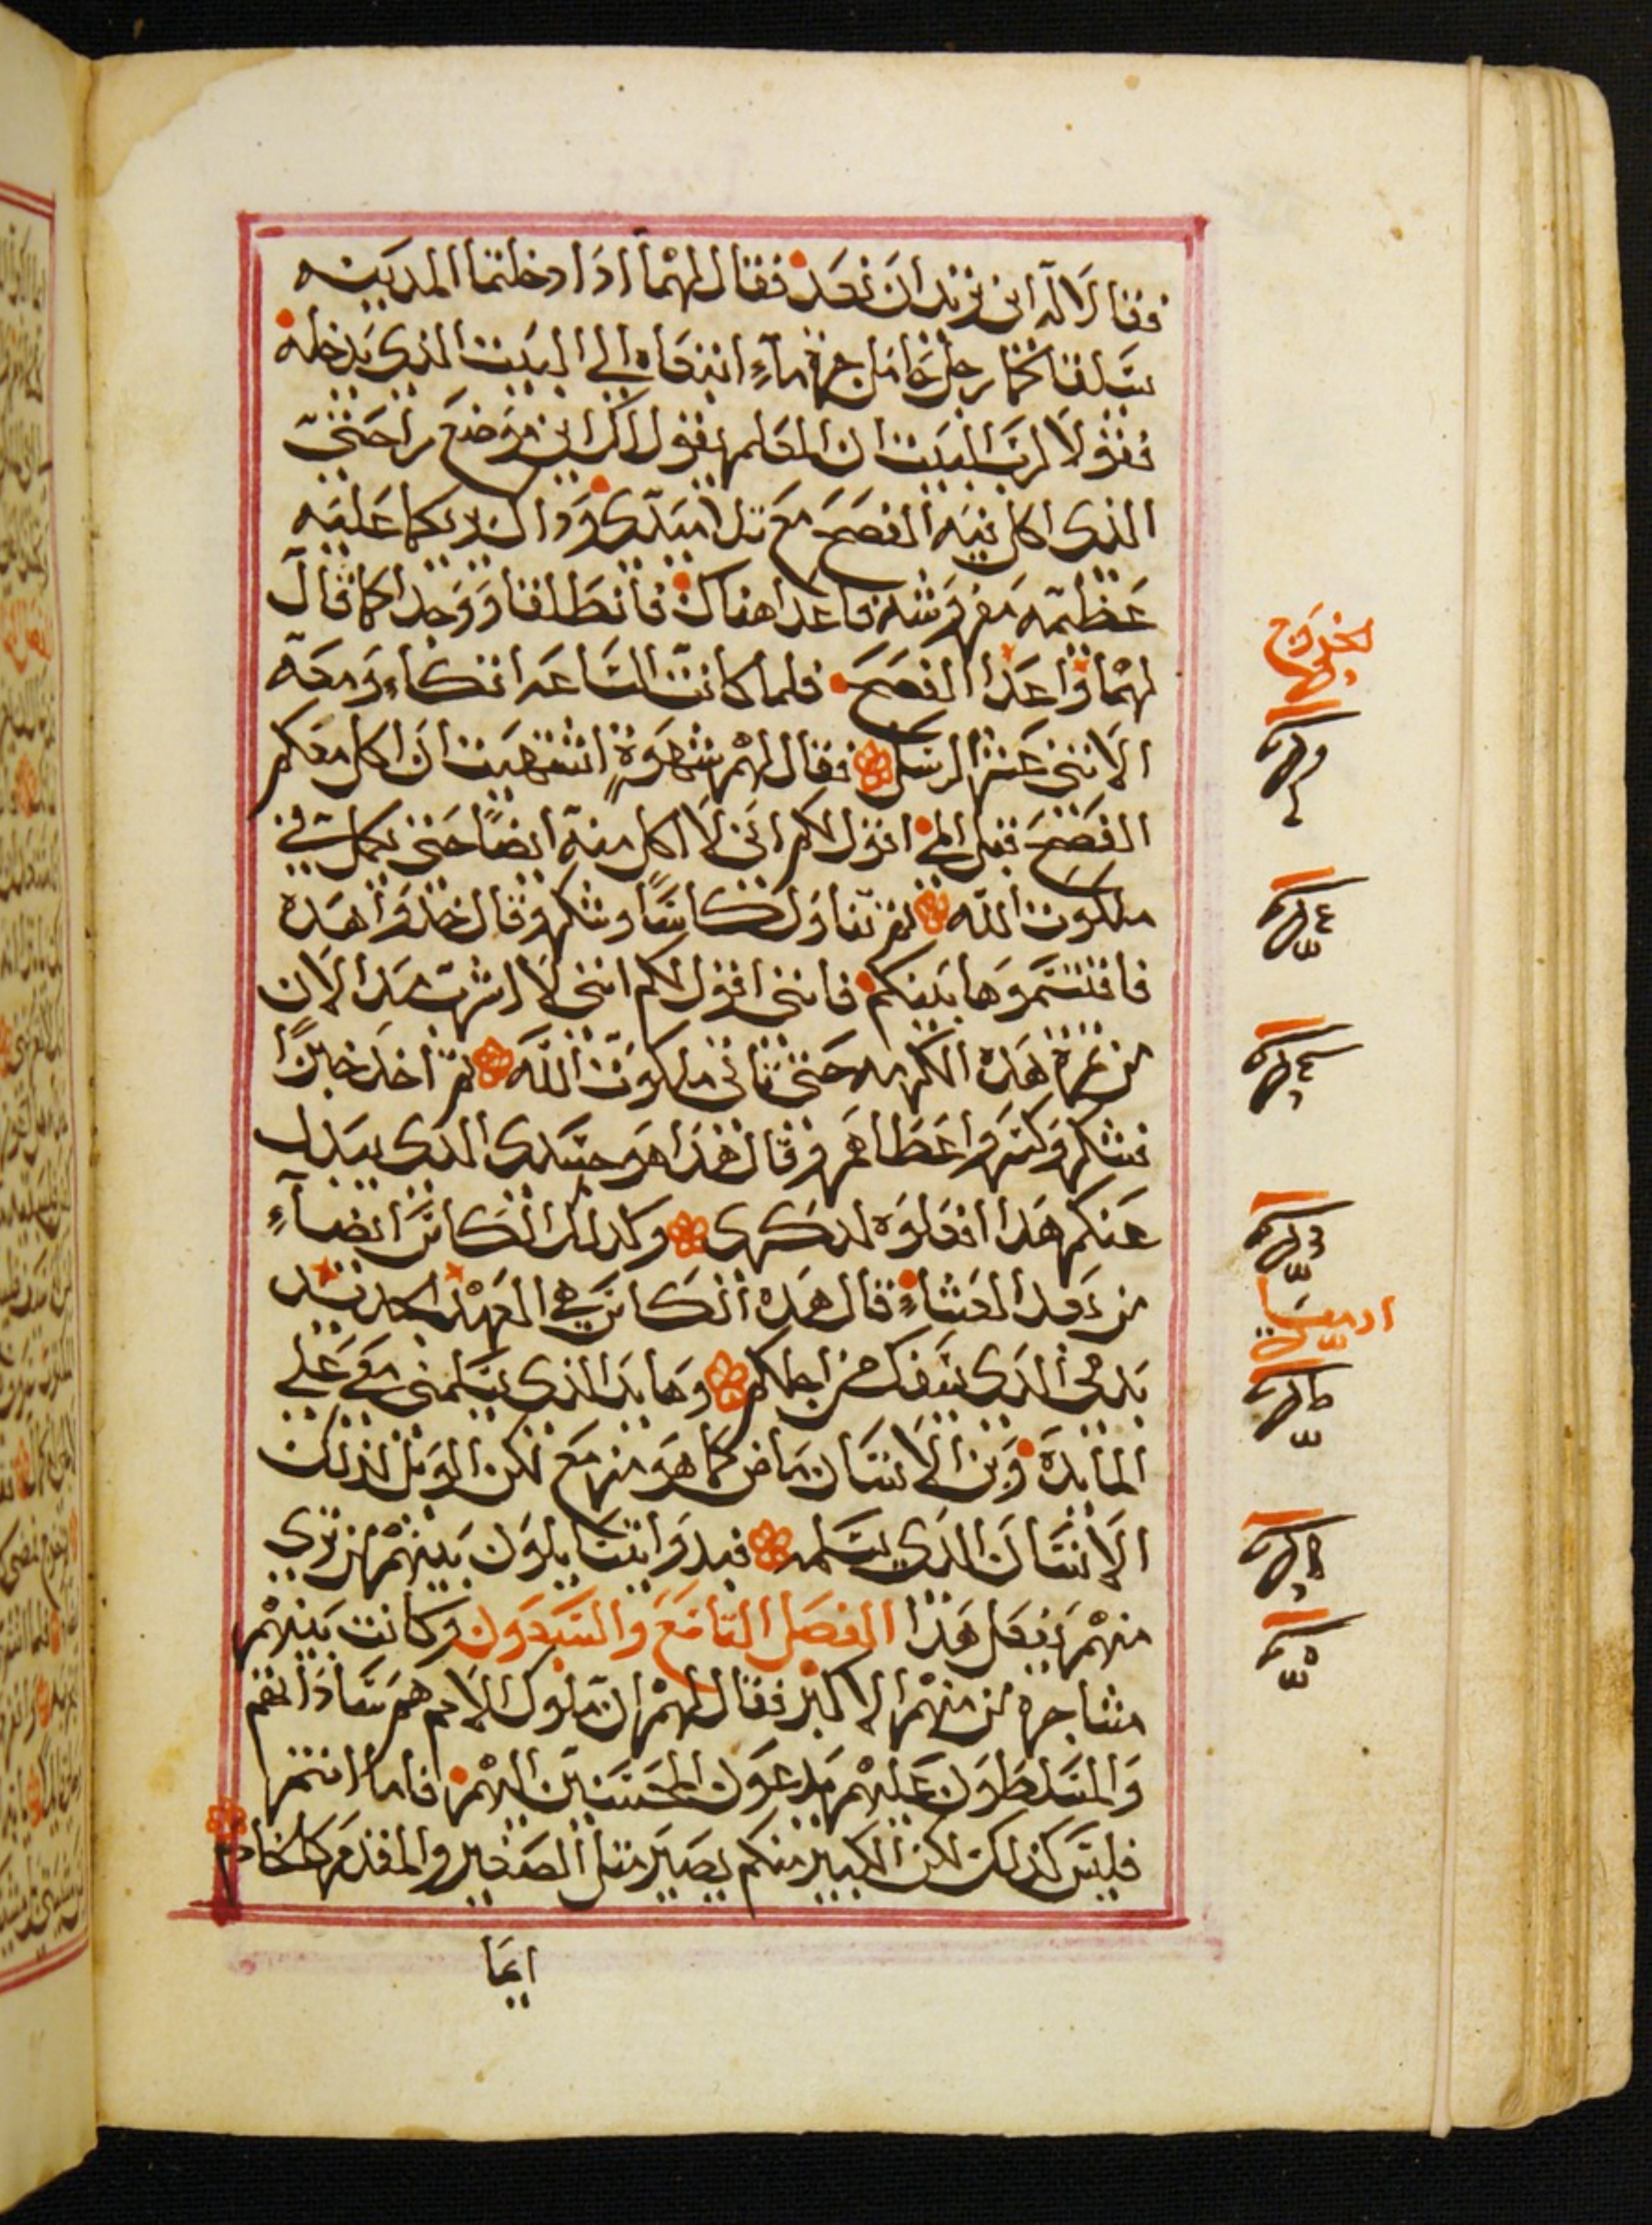 فقالا له اين تريد ان نعد فقال لهما اذا دخلتما المدينه
ستلقاكما رجل حامل جرة ماءٍ اتبعاه الي البيت الذي يدخله
فقولا لرب البيت ان المعلم يقول لك اين موضع راحتي
الذي اكل فيه الفصح مع تلاميذي وذاك يريكما عليه
عظيمه مفروشه فاعدا هناك فانطلقا ووجدا كما قال
لهما واعدا الفصح فلما كانت الساعه اتكاء ومعه
الاثني عشر الرسل فقال لهم شهوةٍ اشتهيت ان اكل معكم
الفصح قبل المي اقول لكم اني لا اكل منه ايضًا حتي يكمل في
ملكوت الله ثم تناول كاسًا وشكر وقال خذوا هذه
فاقتسموها بينكم فانني اقول لكم انني لا اشرب مند الان
من ثمرة هذه الكرمه حتي تاتي ملكوت الله ثم اخذ خبزًا
فشكر وكسر واعطاهم وقال هذا هو جسدي الذي يبذل
عنكم هذا افعلوه لذكري وكذلك الكاس ايضاءٍ
من بعد العشاءِ قال هذه الكاس هي العهد الجديد
بدمي الذي يسفك من اجلكم وها يد الذي يسلمني معي علي
المايدة وبن الانسان ماض كما هو مزمع لكن الويل لذلك
الانسان الذي يسلمه فبدوا يتسايلون بينهم من تري
منهم يفعل هذا الفصل التاسع والسبعون وكانت بينهم
مشاجره من منهم الاكبر فقال لهم ان ملوك الامم هم ساداتهم
والمتسلطون عليهم يدعون المحسنين اليهم فاما انتم
فليس كذلك لكن الكبير منكم يصير مثل الصغير والمقدم كالخادم
ايما